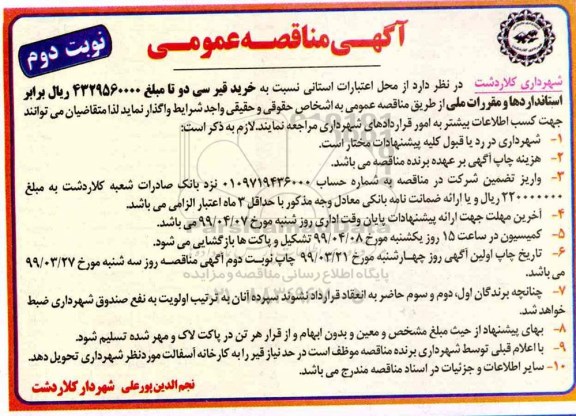 آگهی مناقصه عمومی
نوبت دوم
شهرداری کلاردشت در نظر دارد از محل اعتبارات استانی نسبت به خرید قیر سی دو تا مبلغ ۴۳۲۹۵۶۰۰۰۰ ریال برابر
استانداردها و مقررات ملی از طریق مناقصه عمومی به اشخاص حقوقی و حقیقی واجد شرایط واگذار نماید لذا متقاضیان می توانند
جهت کسب اطلاعات بیشتر به امور قراردادهای شهرداری مراجعه نمایند. لازم به ذکر است:
۱- شهرداری در رد یا قبول کلیه پیشنهادات مختار است.
۲- هزینه چاپ آگهی بر عهده برنده مناقصه می باشد.
۳- واریز تضمین شرکت در مناقصه به شماره حساب ۰۱۰۹۷۱۹۴۳۶۰۰۰ نزد بانک صادرات شعبه کلاردشت به مبلغ
۲۲۰۰۰۰۰۰۰ ریال و یا ارائه ضمانت نامه بانکی معادل وجه مذکور با حداقل ۳ ماه اعتبار الزامی می باشد.
۴- آخرین مهلت جهت ارائه پیشنهادات پایان وقت اداری روز شنبه مورخ ۹۹/۰۴/۰۷ می باشد.
۵- کمیسیون در ساعت ۱۵ روز یکشنبه مورخ ۹۹/۰۴/۰۸ تشکیل و پاکت ها بازگشایی می شود.
۶- تاریخ چاپ اولین آگهی روز چهارشنبه مورخ ۹۹/۰۳/۲۱ چاپ نوبت دوم آگهی مناقصه روز سه شنبه مورخ ۹۹/۰۳/۲۷
می باشد.
۷- چنانچه برندگان اول، دوم و سوم حاضر به انعقاد قرارداد نشوند سپرده آنان به ترتیب اولویت به نفع صندوق شهرداری ضبط
خواهد شد.
۸- بهای پیشنهاد از حیث مبلغ مشخص و معین و بدون ابهام و از قرار هر تن در پاکت لاک و مهر شده تسلیم شود.
۹- با اعلام قبلی توسط شهرداری برنده مناقصه موظف است در حد نیاز قیر را به کارخانه آسفالت موردنظر شهرداری تحویل دهد.
۱۰- سایر اطلاعات و جزئیات در اسناد مناقصه مندرج می باشد.
نجم الدین پورعلی شهردار کلاردشت
پایگاه اطلاع رسانی مناقصه و مزایده